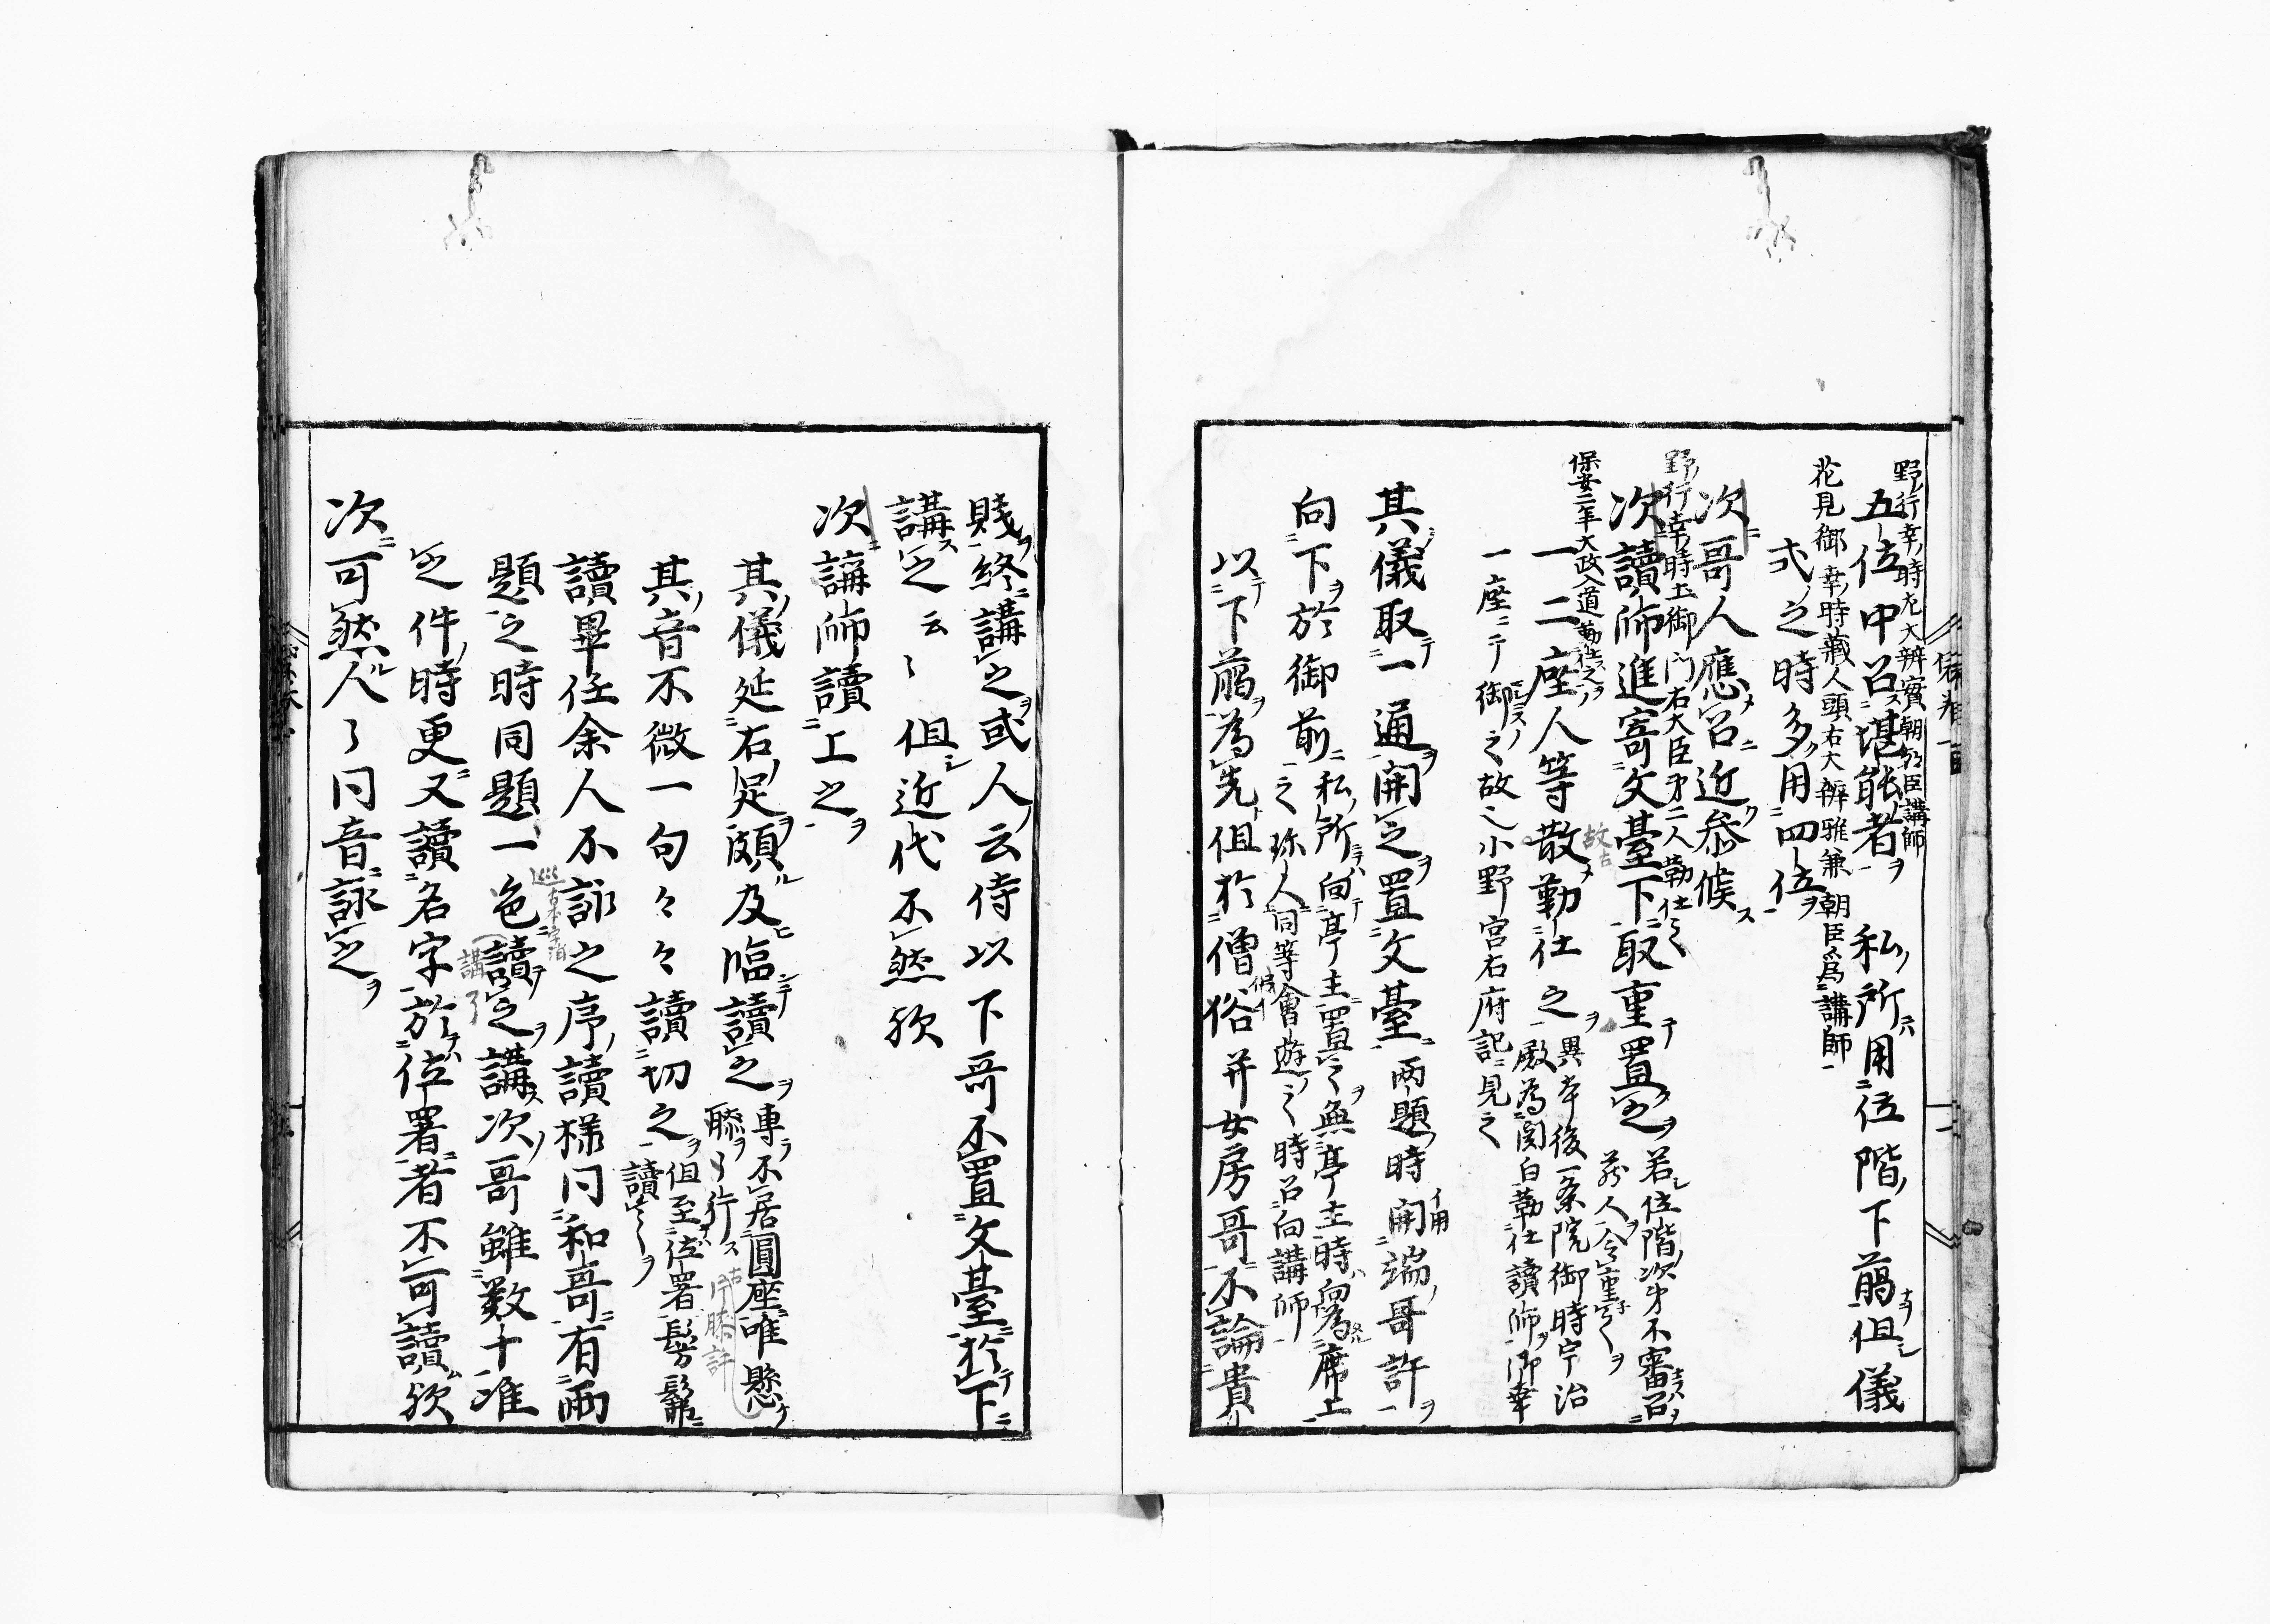 野行幸時左大辨實朝臣講師
五位中召堪能者 私所用位階下﨟但儀
花見御幸時蔵人頭右大辨雅兼朝臣為講師
式之時多用四位
次哥人應召近参候
野行幸時土御門右大臣第二人勤仕之
次讀師進寄文臺下取重置之 若位階次第不審召
蔵人令重之
保安二年大政入道勤仕之
一二座人等散勤仕之 異本後一条院御時宇治
殿為関白勤仕讀師御幸
一座ニテ御之故也小野宮右府記見之
其儀取一通開之置文臺 両題時開端哥許
向下於御前 私所向亭主置之無亭主時向為席上
之 珎人同等會遊之時召向講師
以下﨟為先但於僧俗并女房哥不論貴
賤終講之或人云侍以下哥不置文臺於下
講之云々 但近代不然欤
次講師讀上之
其儀延右足頗及臨讀之 専不居圓座唯懸
膝々行
其音不微一句々々讀切之 但至位署髣髴
讀之
讀畢任余人不詠之序讀様同和哥有兩
題之時同題一色讀之講次哥雖数十准
之件時更又讀名字於位署者不可讀欤
次可然人々同音詠之